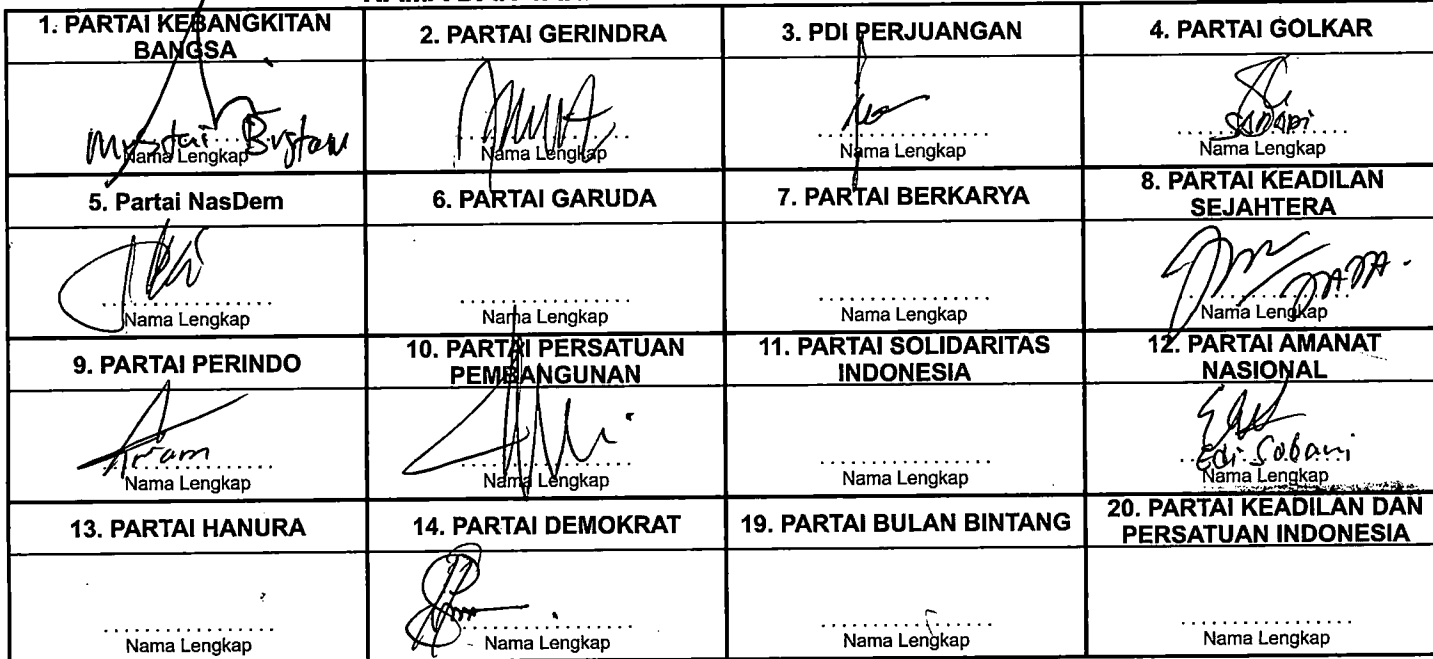 1. PARTAI KEBANGKITAN BANGSA
2. PARTAI GERINDRA
3. PDI PERJUANGAN
4. PARTAI GOLKAR
Nama Lengkap
Nama Lengkap
Nama Lengkap
Nama Lengkap
5. Partai NasDem
6. PARTAI GARUDA
7. PARTAI BERKARYA
8. PARTAI KEADILAN SEJAHTERA
Nama Lengkap
Nama Lengkap
Nama Lengkap
Nama Lengkap
9. PARTAI PERINDO
10. PARTAI PERSATUAN PEMBANGUNAN
11. PARTAI SOLIDARITAS INDONESIA
12. PARTAI AMANAT NASIONAL
Edi Sobani
Nama Lengkap
Nama Lengkap
Nama Lengkap
Nama Lengkap
13. PARTAI HANURA
14. PARTAI DEMOKRAT
19. PARTAI BULAN BINTANG
20. PARTAI KEADILAN DAN PERSATUAN INDONESIA
Nama Lengkap
Nama Lengkap
Nama Lengkap
Nama Lengkap